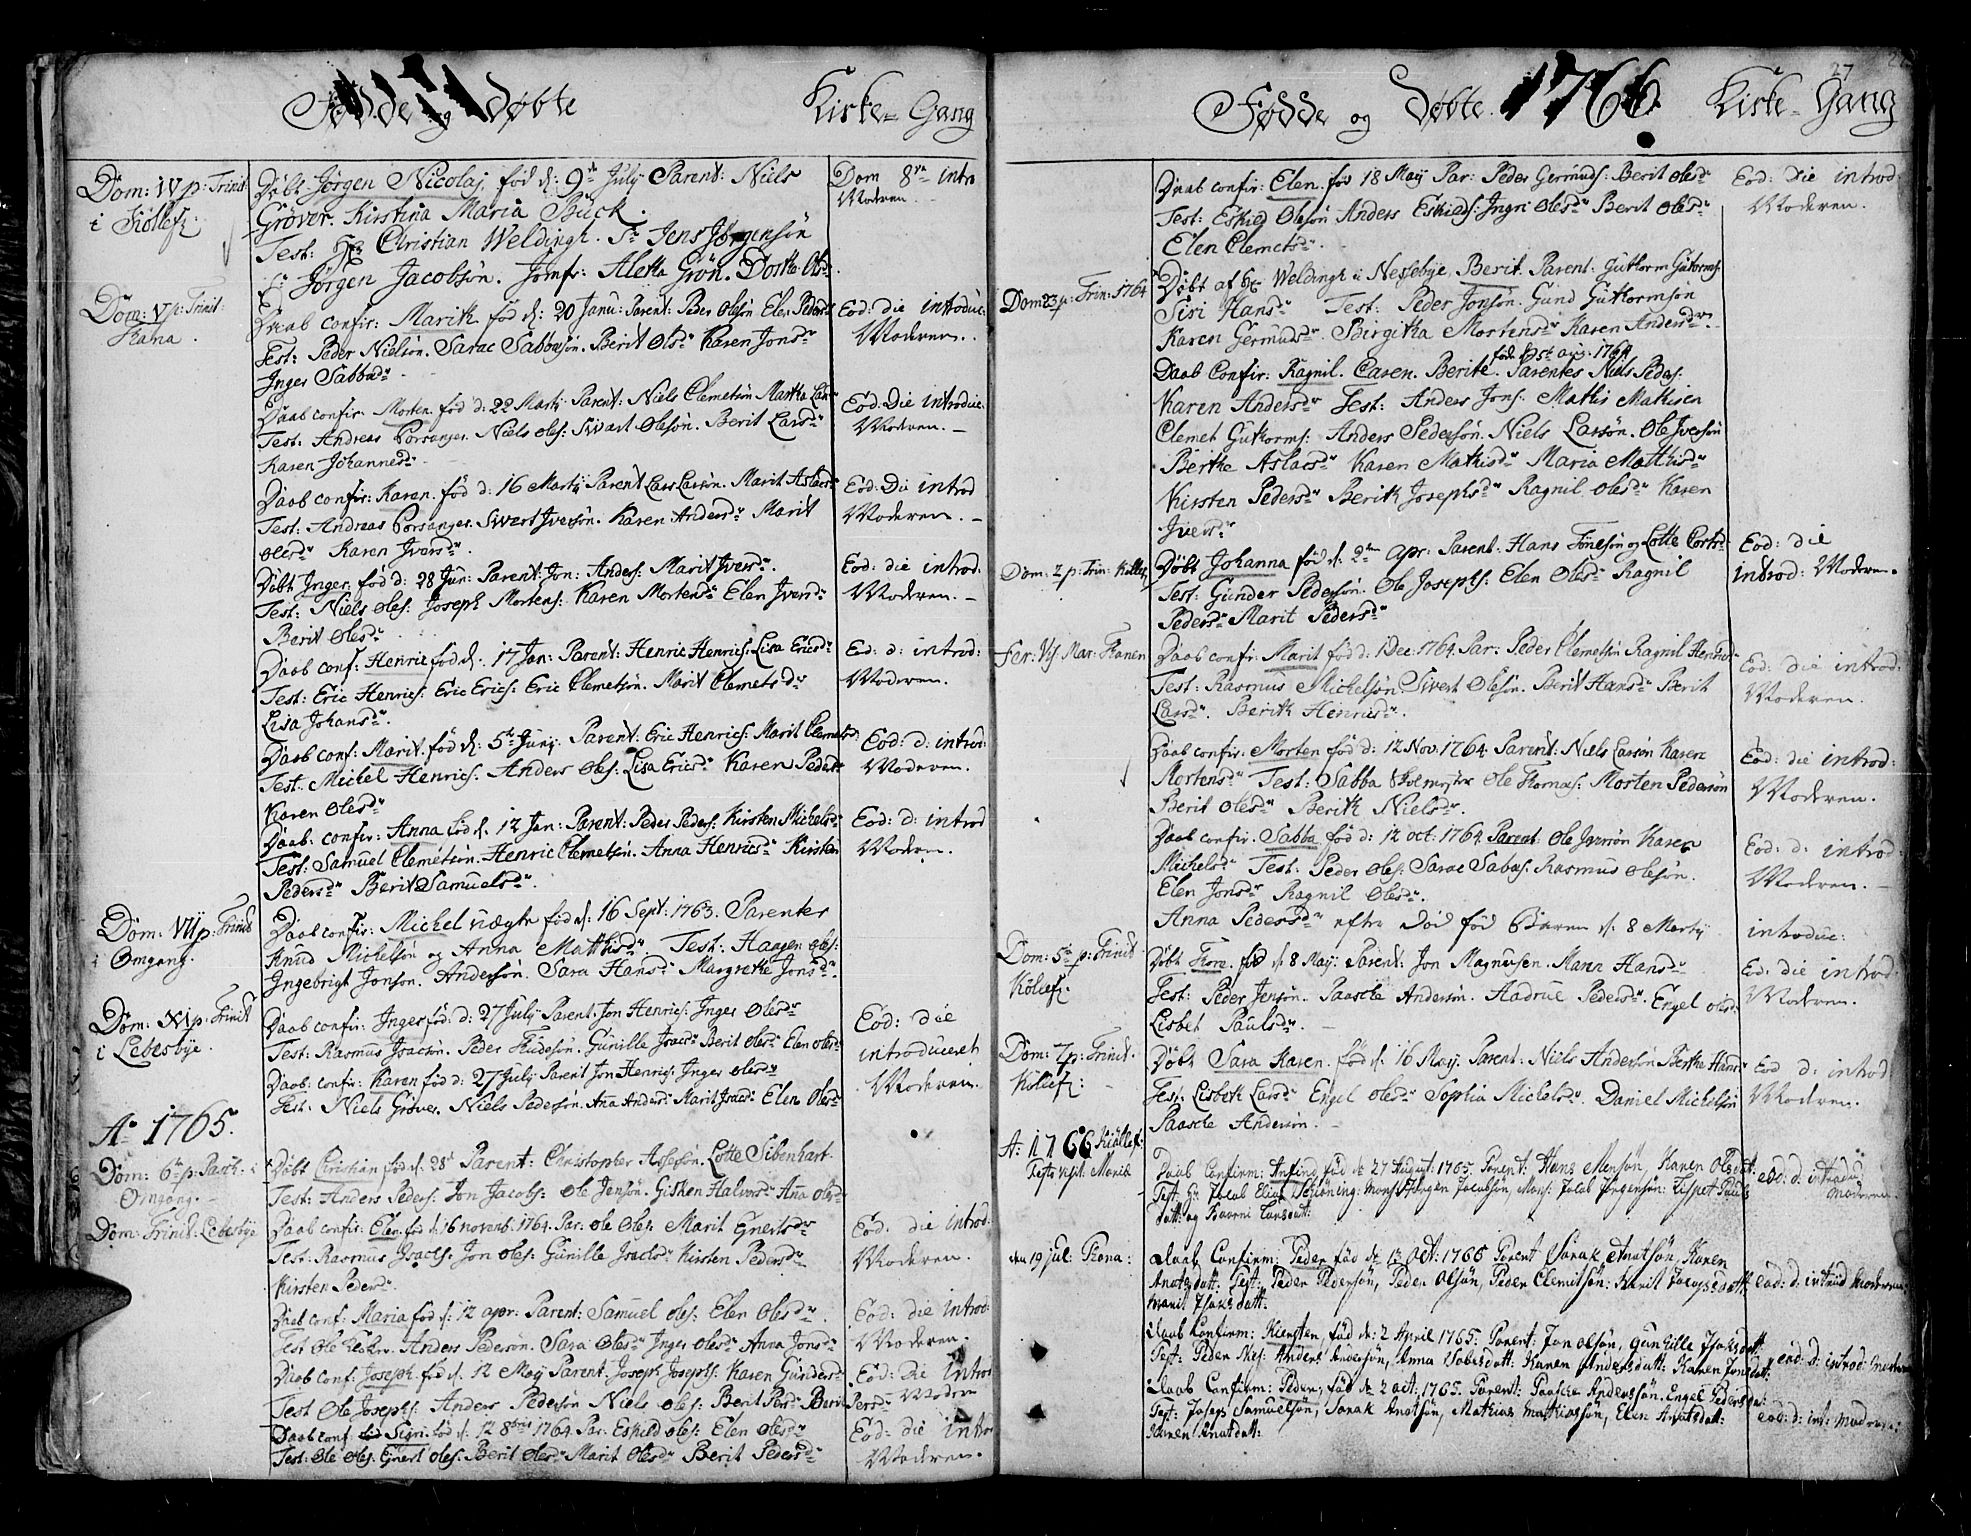 Fødde og døbte Kirke-Gang
Dom: IV p: Trinit:
i Kiøllef:
Døbt Jørgen Nicolaj fød d: 9de July Parent: Niels
Grøver. Kirstina Maria Buck.
Test: Hr Christian Weldingh. Sr Jens Jørgensøn
Sr Jørgen Jacobsøn. Jomfr: Aletta Grøn. Dortha Ols dr
Dom 8va intro
Moderen.
Dom: V p: Trinit:
Tana.
Daab confir: Marith fød d: 20 Janu: Parent: Peder Olsøn Elen Peders dr
Test: Peder Nielsøn. Sarac Sabbasøn. Berit Ols dr Karen Jons dr
Inger Sabba dr
Eod: die introduc:
Moderen.
Daab confir: Morten fød d: 22 Martij Parent: Niels Clemetsøn Martha Lars
Test. Andreas Porsanger. Niels Oles: Swart Olesøn. Berit Lars dr
Karen Johannes dr
Eod: Die introduc.
Moderen.
Daab confir: Karen. fød d: 16 Martij Parent Lars Larsøn. Marit Aslacs dr
Test: Andreas Porsanger. Siwert Iversøn. Karen Anders dr Marit
Oles dr Karen Ivers dr
Eod: Die introd
Moderen.
Døbt Inger. fød d: 28 Jun: Parent: Jon: Anders: Marit Ivers dr
Test: Niels Oles: Joseph Mortens: Karen Mortens dr Elen Ivers dr
Berit Oles dr
Eod: die introd:
Moderen.
Daab conf: Henric fød d: 17 Jan: Parent: Henric Henrics: Lisa Erics dr
Test: Eric Henrics: Eric Erics: Eric Clemetsøn. Marit Clemets dr
Lisa Johans dr
Eod: d: introd:
Moderen.
Daab conf: Marit. fød d: 5te Junij. Parent: Eric Henrics: Marit Clemets dr
Test: Michel Henrics: Anders Oles: Lisa Erics dr Karen Peders dr
Karen Oles dr
Eod: d: introd:
Moderen.
Daab: confir: Anna fød d: 12 Jan: Parent: Peder Peders: Kirsten Michels dr
Test: Samuel Clemetsøn. Henric Clemetsøn. Anna Henrics dr Kirsten
Peders dr Berit Samuels dr
Eod: d: introd
Moderen.
Dom: VII p: Trinit
i Omgang.
Daab confir: Michel uægte fød d: 16 Sept: 1763. Parenter
Knud Michelsøn og Anna Matthis dr Test: Haagen Oles:
Ingebrigt Jonsøn. Andersøn. Sara Hans dr Margrethe Jons dr
Dom: XI p: Trinit
i Lebesbye.
Daab confir: Inger fød: d: 27 July Parent: Jon Henrics: Inger Oles dr
Test: Rasmus Isacsøn. Peder Gunille Isacs dr Berit Oles dr Elen Oles dr
Daab: confir: Karen fød d: 27 July Parent Jon Henrics: Inger Oles dr
Test: Niels Grøver. Niels Pedersøn. Ana Anders dr Marit Isacs dr Elen Oles dr
Eod: die
introduceret
Moderen.
Ao 1765.
Dom: 6te p: Pasch: i
Omgang.
Døbt Cristian fød d: 28d Parent: Christopher Lotte Sibenhart
Test: Anders Peders: Jon Jacobs: Ole Jensøn. Gisken Halvors dr Ana Oles dr
Dom: Trinit: Lebesbye
Daab confir: Elen fød d: 16 novemb. 1764. Par: Ole Oles: Marit Gnerts dr
Test: Rasmus Isacs: Jon Oles: Gunille Isacs dr Kirsten Peders dr
Kirsten Peders dr
Eod: die introd:
Moderen.
Daab conf: Maria fød d: 12 apr: Parent: Samuel Oles: Elen Oles dr
Test Ole Anders Pedersøn. Sara Oles dr Inger Oles dr Anna Jons dr
Eod: die introd:
Moderen.
Daab conf: Joseph. fød d. 12 May Parent. Joseph Josephs: Karen Gunders dr
Test Ole Josephs: Anders Pedersøn Niels Oles: Berit Pers dr Berit Pers dr
Eod: Die introd
Moderen
Daab conf Sigri fød d. 12 8bris 1764. Par: Eskild Oles: Elen Oles dr
Test: Ole Oles. Gnert Oles: Berit Oles dr Marit Oles dr Berit Peders dr
Eod: die introd
Moderen.
Fødde og Døbte 1766. Kirke-Gang
27
Daab confir: Elen. fød 18 May Par: Peder Germunds: Berit Oles dr
Test: Eskild Olesøn Anders Eskilds: Ingri Oles dr Berit Oles dr
Elen Clemets dr
Eod: die introd:
Moderen.
Dom 23 p: Trin: 1764
Døbt af Hr Weldingh i Nessebye. Berit. Parent: Guttorm Gutorms:
Siri Hans dr Test: Peder Jonsøn. Gund Guttormsøn
Karen Germunds dr Birgitha Mortens dr Karen Anders dr
fød d. 5te aug. 1764
Daab Confir: Ragnil. Caren. Berite. Parentes Niels Peders:
Karen Anders dr Test: Anders Jons: Mathis Mathisen
Clemet Guttorms: Anders Pedersøn. Niels Larsøn. Ole Iversøn
Berthe Aslacs dr Karen Mathis dr Maria Matthis dr
Kirsten Peders dr Berith Josephs dr Ragnil Oles dr Karen
Ivers dr
Dom: 2 p: Trin: Kiøllef
Døbt Johanna fød d. 2den apr: Parent: Hans Tønesøn og Lotte Corts dr
Test: Gunder Pedersøn. Ole Josephs: Elen Oles dr Ragnil
Peders dr Marit Peders dr
Eod: die
introd: Moderen.
Fer: Vis Mar: Thanen
Daab confir: Marit fød d: 1 Dec: 1764. Par: Peder Clemetsøn Ragnil Henrics dr
Test: Rasmus Michelsøn. Sivert Olesøn. Berit Hans dr Berit
Lars dr. Berith Henrics dr.
Eod: die introd:
Moderen.
Daab confir. Morten fød d: 12 Nov. 1764. Parent: Niels Larsøn Karen
Mortens dr Test: Sabba Ole Thomas: Morten Pedersøn
Berit Oles dr Berith Niels dr.
Eod: die introd:
Moderen.
Daab confir. Sabba fød d: 12 oct: 1764. Parent: Ole Iversøn Karen
Michels dr Test: Peder Oles: Sarac Sabas: Rasmus Olesøn.
Elen Jons dr Ragnil Oles dr.
Eod: d: introd:
Moderen.
Anna Peders dr efter død fød Baren d. 8 Martij introduc:
Dom: 5te p: Trinit
Kiøllef:
Døbt Thora. fød d. 8 May: Parent: Jon Magnusen. Maren Hans dr
Test: Peder Jensøn. Paasche Andersøn. Aadrue Peders dr. Engel Oles dr
Lisbet Pauls dr.
Eod: die introd:
Moderen.
Dom: 7 p: Trinit.
Kiøllef:
Døbt Sara Karen. fød d. 16 May. Parent: Niels Andersøn Berthe Hans dr
Test: Lisbeth Lars dr Engel Oles dr Sophia Michels dr. Daniel Michelsøn
Paasche Andersøn.
Eod d: introd:
Moderen.
A: 1766 Kiøllef:
Festo visit: Mariæ
Daab Confirm: Anfind fød d. 27 August: 1765. Parent: Hans Monsøn, Karen Ols datt:
Test: Hr Jacob Elias Schiøning: Mons: Jørgen Jacobsøn, Mons: Jacob Jørgensøn: Lispet Pauls
datt: og Laers datt:
eod: d: introdu
Moderen.
den 19 jul: Tana:
Daab Confirm: Peder fød d. 13 Oct: 1765 Parent Sarak Anutsøn, Karen
Anuts datt: Test: Peder Pedersøn, Peder Olsøn, Peder Clemitsøn: Marit datt:
Marit Isaks datt:
eod: d: introd Moderen
Daab Confirm: Kiersten, fød de: 2 April 1765. Parent: Jon Olsøn, Gunhille Isaksdatt:
Test: Peder Nils: Anders Andersøn, Anna datt: Karen Andersdatt: Karen Jonsdatt:
eod: d: introd: Moderen
Daab Confirm: Peder, fød d. 2 oct: 1765. Parent: Paasche Anderssøn. Engel Pedersdat:
Test: Josep Samuelsøn, Sarak Anutsøn, Mathias Mathiassøn, Elen Anutsdatt:
Karen Anutdatt:
eod: d: int: moderen: